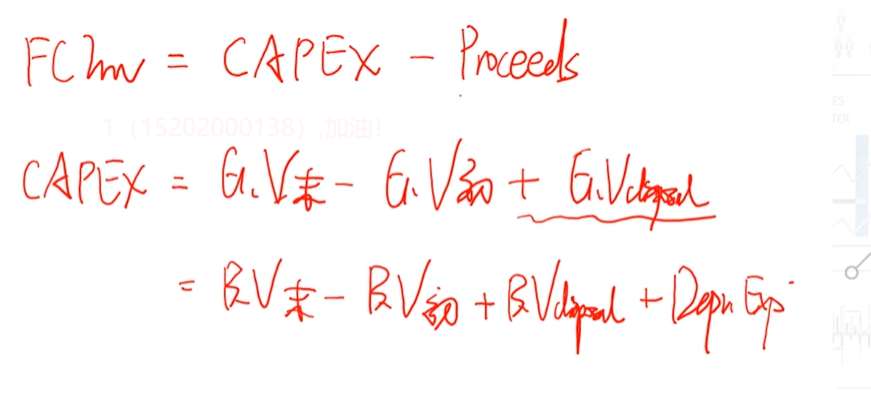 FCInv = CAPEX - Proceeds
1（15202000138）加油!
CAPEX = G.V末 - G.V初 + G.Vdisposal
= BV末 - BV初 + BVdisposal + Depn Exp